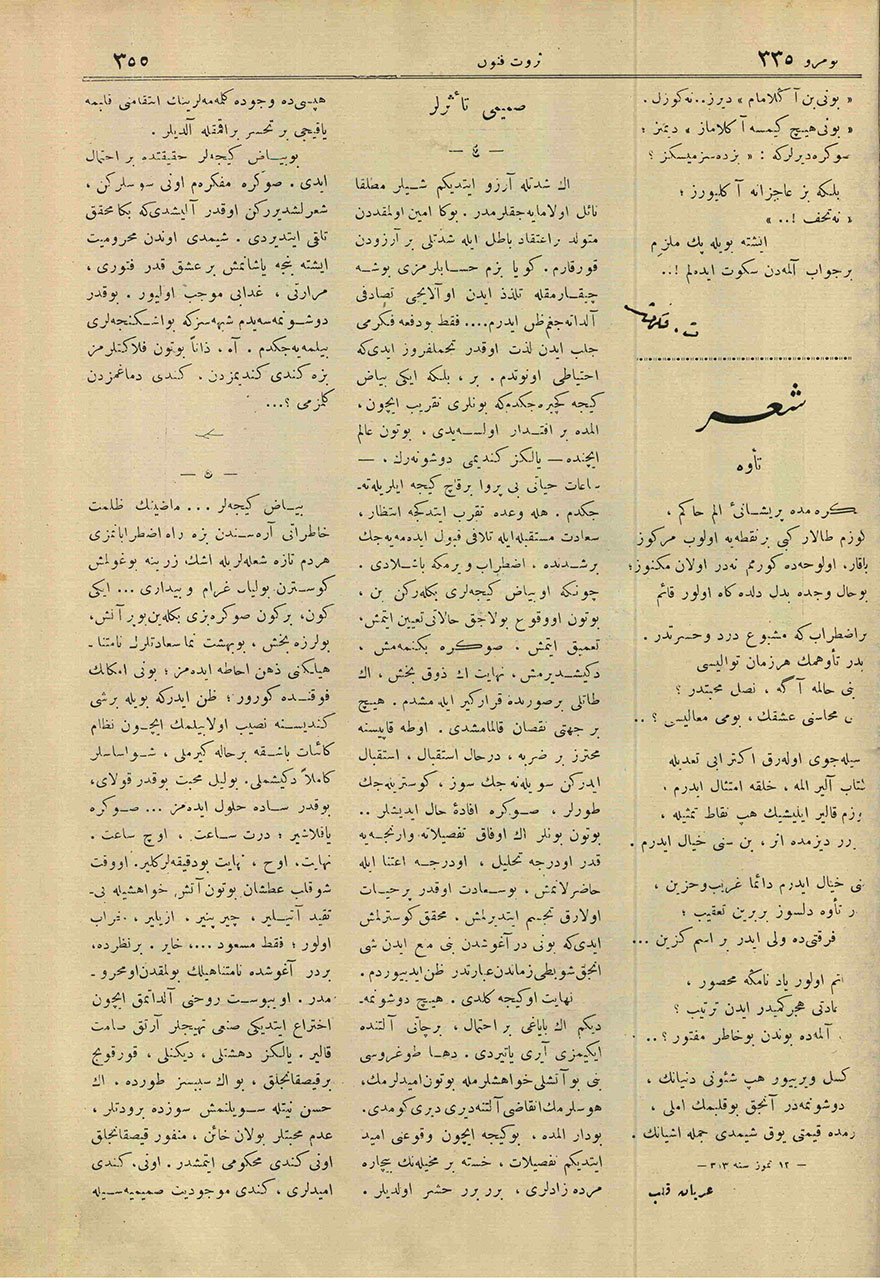 نومرو ٣٣٥
ثروت فنون
٣٥٥
« بونی بن آ كلامام » دیرز.. نه‌كوزل .
« بونی هیچ كیمسه آ كلاماز » دیمز ؛
صوكره دیرلركه : « بزده‌سز میسكز ؟
بلكه بز عاجزانه آ كلیورز ؛
« نه‌تحف !.. »
ایشته بویله پك ملزم
بر جواب آلمه‌دن سكوت ایده‌لم !..
ت . فكرت
شعر
تأوه
كره مده پریشانیٔ الم حاكم ،
كوزم طالار كبی بر نقطه‌یه اولوب مركوز
باقار، اولوحه‌ده كوررم نه‌در اولان مكنوز؛
بوحال وجده بدل دلده كاه اولور قائم
براضطراب‌كه مشبوع درد وحسرتدر .
بدر تأوهمك هرزمان توالیسی
بنی حالمه آ گه ، نصل محبتدر ؟
محاسنی عشقك ، بومی معالیسی ؟ ..
وسیله‌جوی اوله‌رق اكتر ابی تعدیله
كتاب آلیر المه ، خلقه امتثال ایدرم .
كوزم قالیر ایلیشیك هپ نقاط تمثیله ،
دیزمده اتر ، بن سنی خیال ایدرم .
سنی خیال ایدرم دائما غریب‌وحزین ،
بر تأوه دلسوز بربرین تعقیب ؛
فرقتی‌ده ولی ایدر بر اسم كزین ...
اولور یاد نامكه محصور ،
عادتی هجركمیدر ایدن ترتیب ؟
آلمه‌ده بوندن بوخاطر مفتور ؟ ..
كسل ویریور هپ شئونی دنیانك ،
دوشونمه‌در آنجق بوقلبمك املی ،
قیمتی یوق شیمدی جمله اشیانك .
— ١٢ تموز سنه ٣١٣ —
عریان قلب
صمیمی تأثرلر
— ٤ —
اك شدتله آرزو ایتدیكم شیلر مطلقا
نائل اولامایه‌جقلرمدر . بوكا امین اولمقدن
متولد براعتقاد باطل ایله شدتلی بر آرزودن
قورقارم. كویا بزم حسابلرمزی بوشه
چیقارمقله تلذذ ایدن اوآلایجی تصادفی
آلدانه‌جغم ظن ایدرم.... فقط بودفعه فكرمی
جلب ایدن لذت اوقدر تحملفروز ایدی‌كه
احتیاطی اونوتدم . بر ، بلكه ایكی بیاض
كیجه كچیره‌جكدم‌كه بونلری تقریب ایچون،
المده بر اقتدار اولسه‌یدی ، بوتون عالم
ایچنده — یالكز كندیمی دوشونه‌رك ، —
ساعات حیاتی بی پروا برقاچ كیجه ایلریله‌ته‌ـ
جكدم . هله وعده تقرب ایتدكجه انتظار ،
سعادت مستقبله‌ایله تلافی قبول ایده‌میه‌جك
برشدنده ، اضطراب ویرمكه باشلادی .
چونكه اوبیاض كیجه‌لری بكله‌ركن بن ،
بوتون اووقوع بولاجق حالاتی تعیین ایتمش،
تعمیق ایتمش . صوكره بكنمه‌مش ،
دكیشدیرمش ، نهایت اك ذوق بخش ، اك
طاتلی برصورتده قراركیر ایله مشدم . هیچ
بر جهتی نقصان قالمامشدی . اوطه قاپیسنه
محترز بر ضربه ، درحال استقبال ، استقبال
ایدركن سویله‌نه جك سوز ، كوستریله‌جك
طورلر ، صوكره افادهٔ حال ایدیشلر ..
بوتون بونلر اك اوفاق تفصیلاته وارنجه‌یه
قدر اودرجه تحلیل ، اودرجه اعتنا ایله
حاضرلانمش ، بوسعادت اوقدر پرحیات
اولارق تجسم ایتدیرلمش . محقق كوسترلمش
ایدی‌كه بونی درآغوشدن بنی منع ایدن شی
انجق شوبطی زماندن عبارتدر ظن ایدیوردم.
نهایت اوكیجه كلدی . هیچ دوشونمه‌ـ
دیكم اك بایاغی بر احتمال ، برچاتی آلتنده
ایكیمزی آیری یاتیردی . دها طوغروسی
بنی بوآتشلی خواهشلرمله بوتون‌امیدلرمك،
هوسلرمك انقاضی آلتنده‌دیری دیری‌كومدی.
بودار المده ، بوكیجه ایچون وقوعی امید
ایتدیكم تفصیلات ، خسته بر مخیله‌نك بیچاره
مرده زادلری ، برر برر حشر اولدیلر .
هپسی‌ده وجوده كله‌مه‌لرینك انتقامنی قلبمه
یاقیجی بر تحسر براقمقله آلدیلر .
بوبیاض كیجه‌لر حقیقتده بر احتمال
ایدی . صوكره مفكره‌م اونی سوسلركن ،
شعرلشدیرركن اوقدر آلیشدی‌كه بكا محقق
تلقی ایتدیردی . شیمدی اوندن محرومیت
ایشته بنجه یاشانمش برعشق قدر فتوری ،
مرارتی ، غدابی موجب اولیور . بوقدر
دوشونمه‌سه‌یدم شبهه‌سزكه بواشكنجه‌لری
بیلمه‌یه‌جكدم . آه ، ذاتاً بوتون فلاكتلرمز
بزه كندی كندیمزدن . كندی دماغمزدن
كلزمی ؟...
— ٥ —
بیاض كیجه‌لر ... ماضینك ظلمت
خاطراتی آره‌سندن بزه راه اضطراباتمزی
هردم تازه شعله‌لریله اشك زرینه بوغولمش
كوسترن بولیال غرام و بیداری ... ایكی
كون، بركون صوكره‌بزی بكله‌ین‌بوبر آتش،
بولرزه‌بخش ، بوبهشت نما سعادتلرك نامتناـ
هیلكنی ذهن احاطه ایده‌مز ؛ بونی امكانك
فوقنده كورور ؛ ظن ایدركه بویله برشی
كندیسنه نصیب اولابیلمك ایچون نظام
كائنات باشقه برحاله كیرملی ، شواساسلر
كاملاً دكیشملی. بولیل محبت بوقدر قولای،
بوقدر ساده حلول ایده‌مز ... صوكره
یاقلاشیر ؛ درت ساعت ، اوچ ساعت .
نهایت، اوح ، نهایت بودقیقه‌لركلیر. اووقت
شوقلب عطشان بوتون آتش خواهشیله بی‌ـ
تقید آتیلیر ، چیرپنیر . ازیلیر ، خراب
اولور ؛ فقط مسعود ....، خایر . برنظرده،
بردر آغوشده نامتناهیلك بولمقدن اومحروـ
مدر. اویبوست روحنی آلداتمق ایچون
اختراع ایتدیكی صنعی تهیجلر آرتق صامت
قالیر . یالكز دهشتلی ، دیكنلی ، قورقونج
برقیصقانجلق ، بواك سببسز طورده . اك
حسن نیتله سویلنمش سوزده برودتلر ،
عدم محبتلر بولان خائن ، منفور قیصقانجلق
اونی كندی محكومی ایتمشدر . اونی. كندی
امیدلری ، كندی موجودیت صمیمیه‌سیله